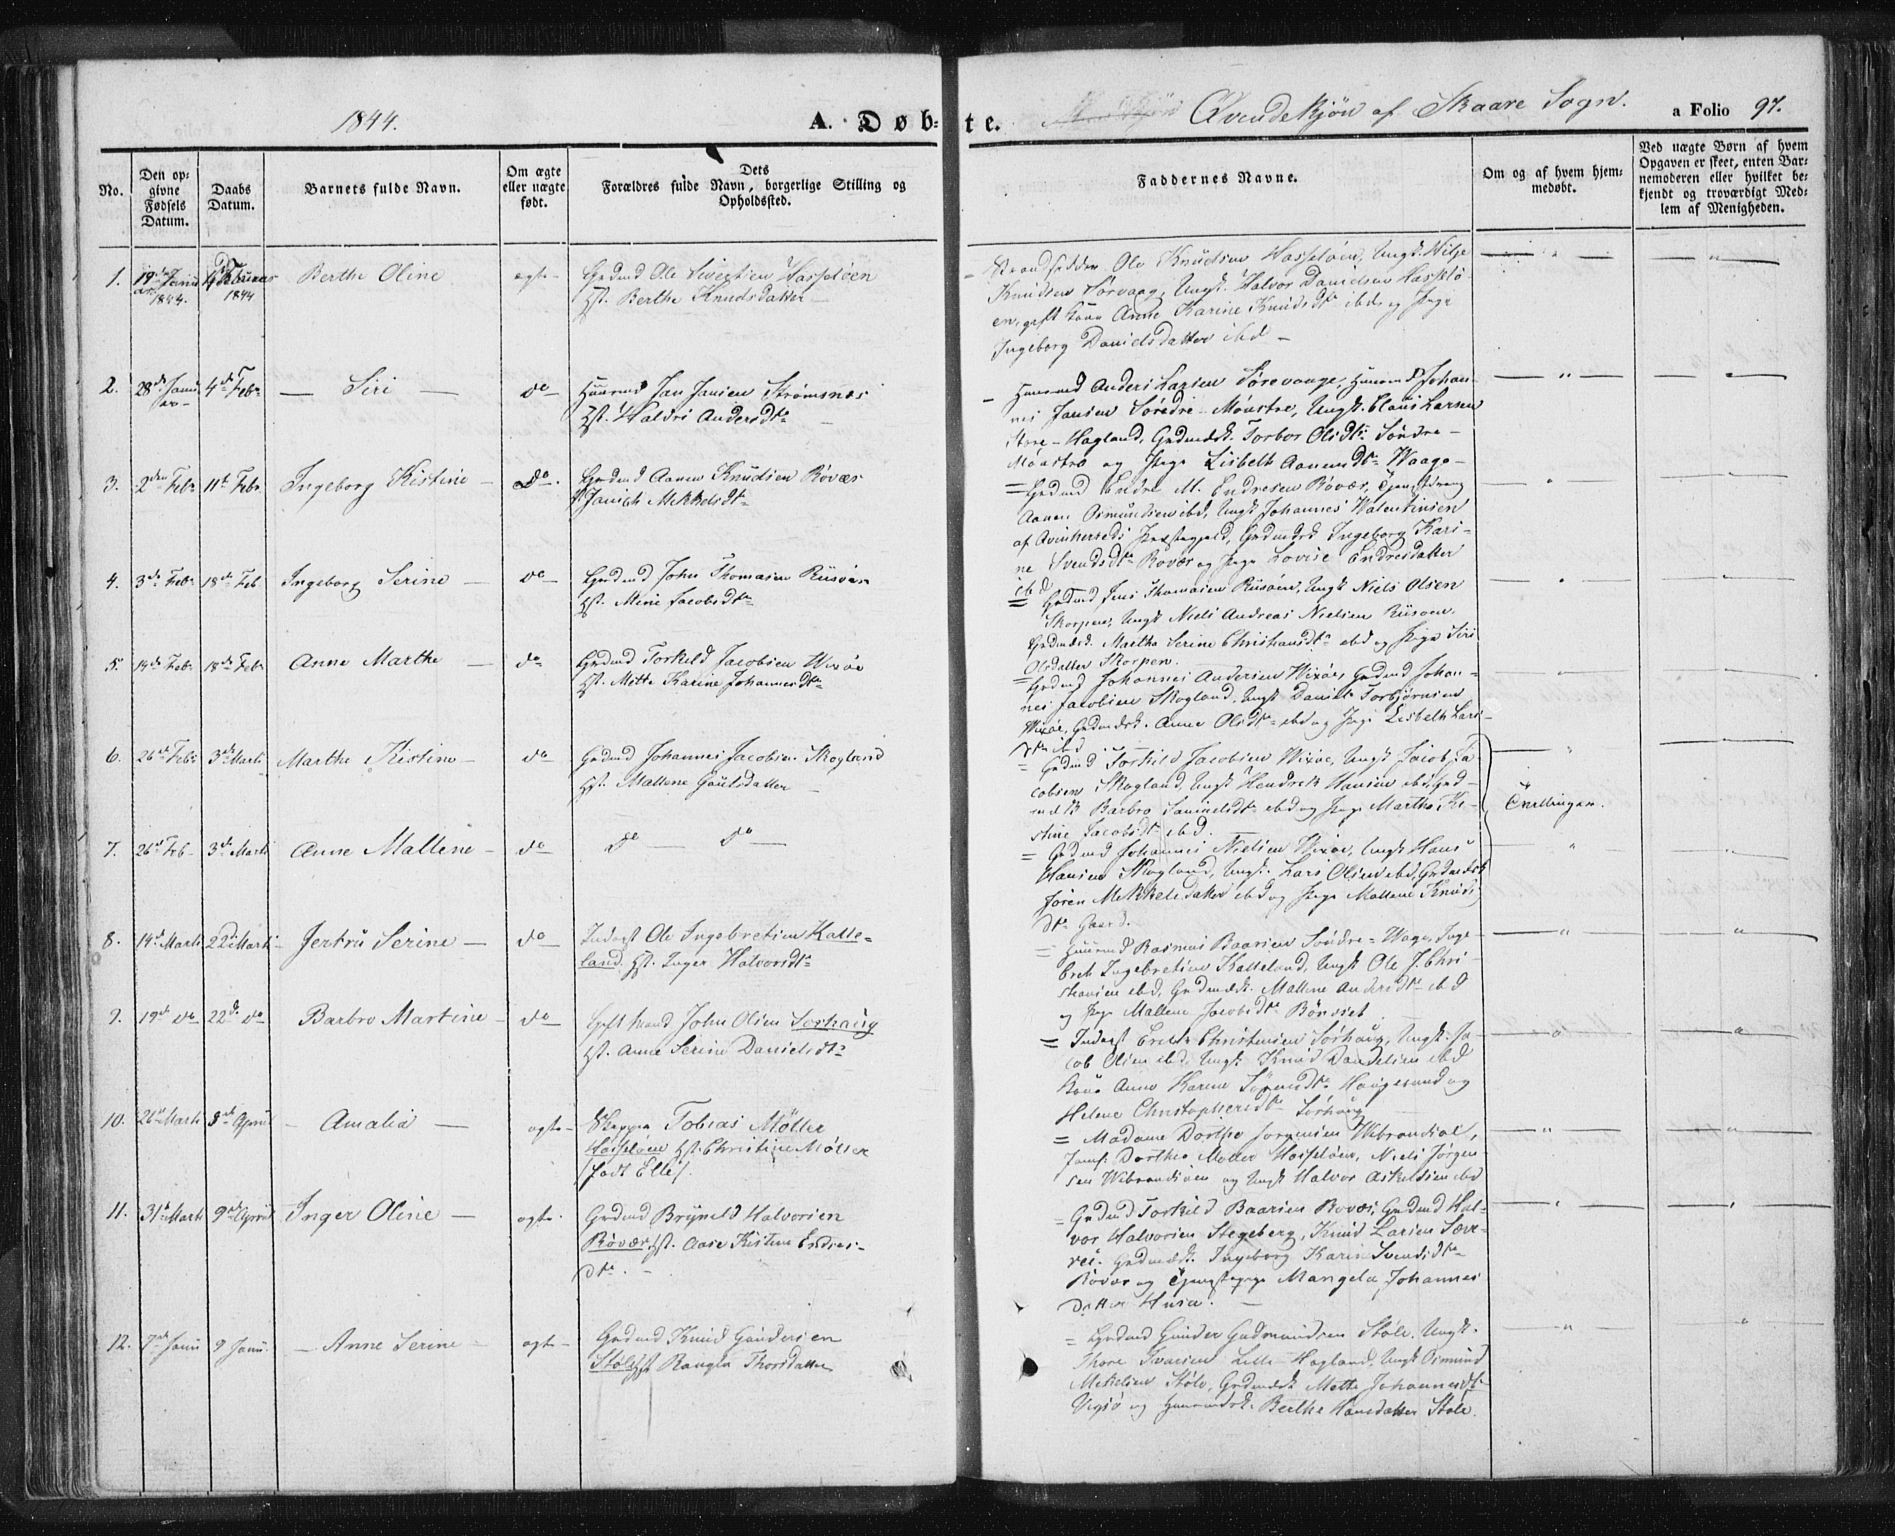 1844.
A. Døbte.
Qvindekjön af Skaare Sogn.
a Folio 97.
No.
Den opgivne Fødsels Datum.
Daabs Datum.
Barnets fulde Navn.
Om ægte eller uægte født.
Dets
Forældres fulde Navn, borgerlige Stilling og
Opholdssted.
Faddernes Navne.
Om og af hvem hjemmedøbt.
Ved uægte Børn af hvem
Opgaven er skeet, enten Bar-
nemoderen eller hvilket be-
kjendt og troværdigt Med-
lem af Menigheden.
1. 1844. 1844 Berthe Oline ægte Grdmd Ole Sivertsen Hasseløen
Hst. Berthe Knudsdatter
Strandsidder Ole Knudsen Hasseløen, Ungk.
Knudsen Sørvaag, Ungk. Halvor Danielsen Hasselø-
en, gift Kone Anne Karine Knudsdtr ibd og Pige
Ingeborg Danielsdatter ibd
2. 28de Janu 4de Febr Siri do Huusmd Jan Jansen Strømsnæs
Hst. Valdri Andersdtr
Huusmd Anders Larsen Sørevaage, Huusmd Johan-
nes Jansen Søndre-Mønstre, Ungk. Claus Larsen
Store-Hagland, Grdmdsk. Torbor Olsdtr Søndre
Mønstre og Pige Lisbeth Aanensdtr Waage
3. 2den Febr 11te Febr Ingeborg Kistine do Grdmd Aanen Knudsen Røvær
Hst. Janich Mikkelsdtr
Grdmd Endre M. Endresen Røvær, Tjenstdreng
Aanen Osmundsen ibd, Ungk Johannes Valentinsen
af Præstegjeld, Grdmdsk Ingeborg Kari-
ne Svendsdtr Rovær og Pige Lovise Endresdatter
ibd
4. 3de Febr 18de Feb Ingeborg Serine do Grdmd John Thomasen Riisøen
Hst. Mine Jacobsdtr
Grdmd Jens Thomasen Riisøen, Ungk Niels Olsen
Skorpen, Ungk Niels Andreas Nielsen Riisøen,
Grdmdsk. Marthe Serine Christiansdtr ibd og Pige Siri
Olsdatter Skorpen.
5. 14de Febr 18de Febr Anne Marthe do Grdmd Torkild Jacobsen Wixøe
Hst. Mette Karine Johannesdtr
Grdmd Johannes Andersen Wixøe, Grdmd Johan-
nes Jacobsen Skogland, Ungk Daniel Torbjørnsen
Wixøe, Grdmdsk. Anne Olsdtr ibd og Pige Lisbeth Lars-
dtr ibd
6. 26de Febr 3de Marti Marthe Kistine do Grdmd Johannes Jacobsen Skogland
Hst. Mallene Gautsdatter
Grdmd Torkild Jacobsen Wixøe, Ungk Jacob Ja-
cobsen Skogland, Ungk Hendrik Hansen ibd, Grd-
mdsk Barbro Samuelsdtr ibd og Pige Marthe Ki-
stine Jacobsdtr ibd.
Tvillinger.
7. 26de Feb 3de Marti Anne Mallene do do do
Grdmd Johannes Nielsen Wixøe, Ungk Hans
Hansen Skogland, Ungk. Lars Olsen ibd, Grdmdsk
Jøren Mekkelsdatter ibd og Pige Mallene Knuds
dtr Gaard.
8. 14de Marti 22de Marti Jertrü Serine do Inderst Ole Ingebretsen Kalle-
land. Hst. Inger Halvorsdtr
Huusmd Rasmus Baarsen Søndre-Waage, Inge-
bret Ingebretsen Kalleland, Ungk Ole J. Chri-
stiansen ibd, Grdmdsk. Mallene Andersdtr ibd
og Pige Mallene Jacobsdtr
9. 19de do 22de do Barbro Martine do Gift Mand John Olsen Sørhaug
Hst. Anne Serine Danielsdtr
Inderst Erik Christensen Sørhaug, Ungk. Ja-
cob Olsen ibd, Ungk Knud Danielsen ibd
Kone Anne Karine Haugesund og
Helene Christophersdtr Sørhaug
10. 26de Marti 8de April Amalia ægte Skipper Tobias Møller
Hasseløen Hst. Christine Møller
født Elle
Madame Dorthe Jørgensen Wibrandsøe,
Jomf. Dorthea Møller Hasseløen, Niels Jørgen-
sen Wibrandsøen og Ungk Halvor Askeldsen ibd
11. 31te Marti 9de April Inger Oline ægte Grdmd Brynild Halvorsen
Røvær, Hst. Aase Kistine Endres-
dtr.
Grdmd Torkild Baarsen Rovær, Grdmd Hal-
vor Halvorsen Stegeberg, Knud Larsen
Grdmdsk. Ingeborg Karine Svendsdtr
Røvær og Tjenstepige Mangela Johannes
datter
12. 7de Janu 9 Janu. Anne Serine ægte Grdmd Knud Gundersen
Støle Hst Rangla Thorsdatter
Grdmd Gunder Gudmundsen Støle, Ungk.
Thore Ivarsen Lille Hagland, Ungk Osmund
Mekelsen Støle, Grdmdsk Mette Johannesdtr
og Huusmdsk. Berthe Hansdatter Støle.